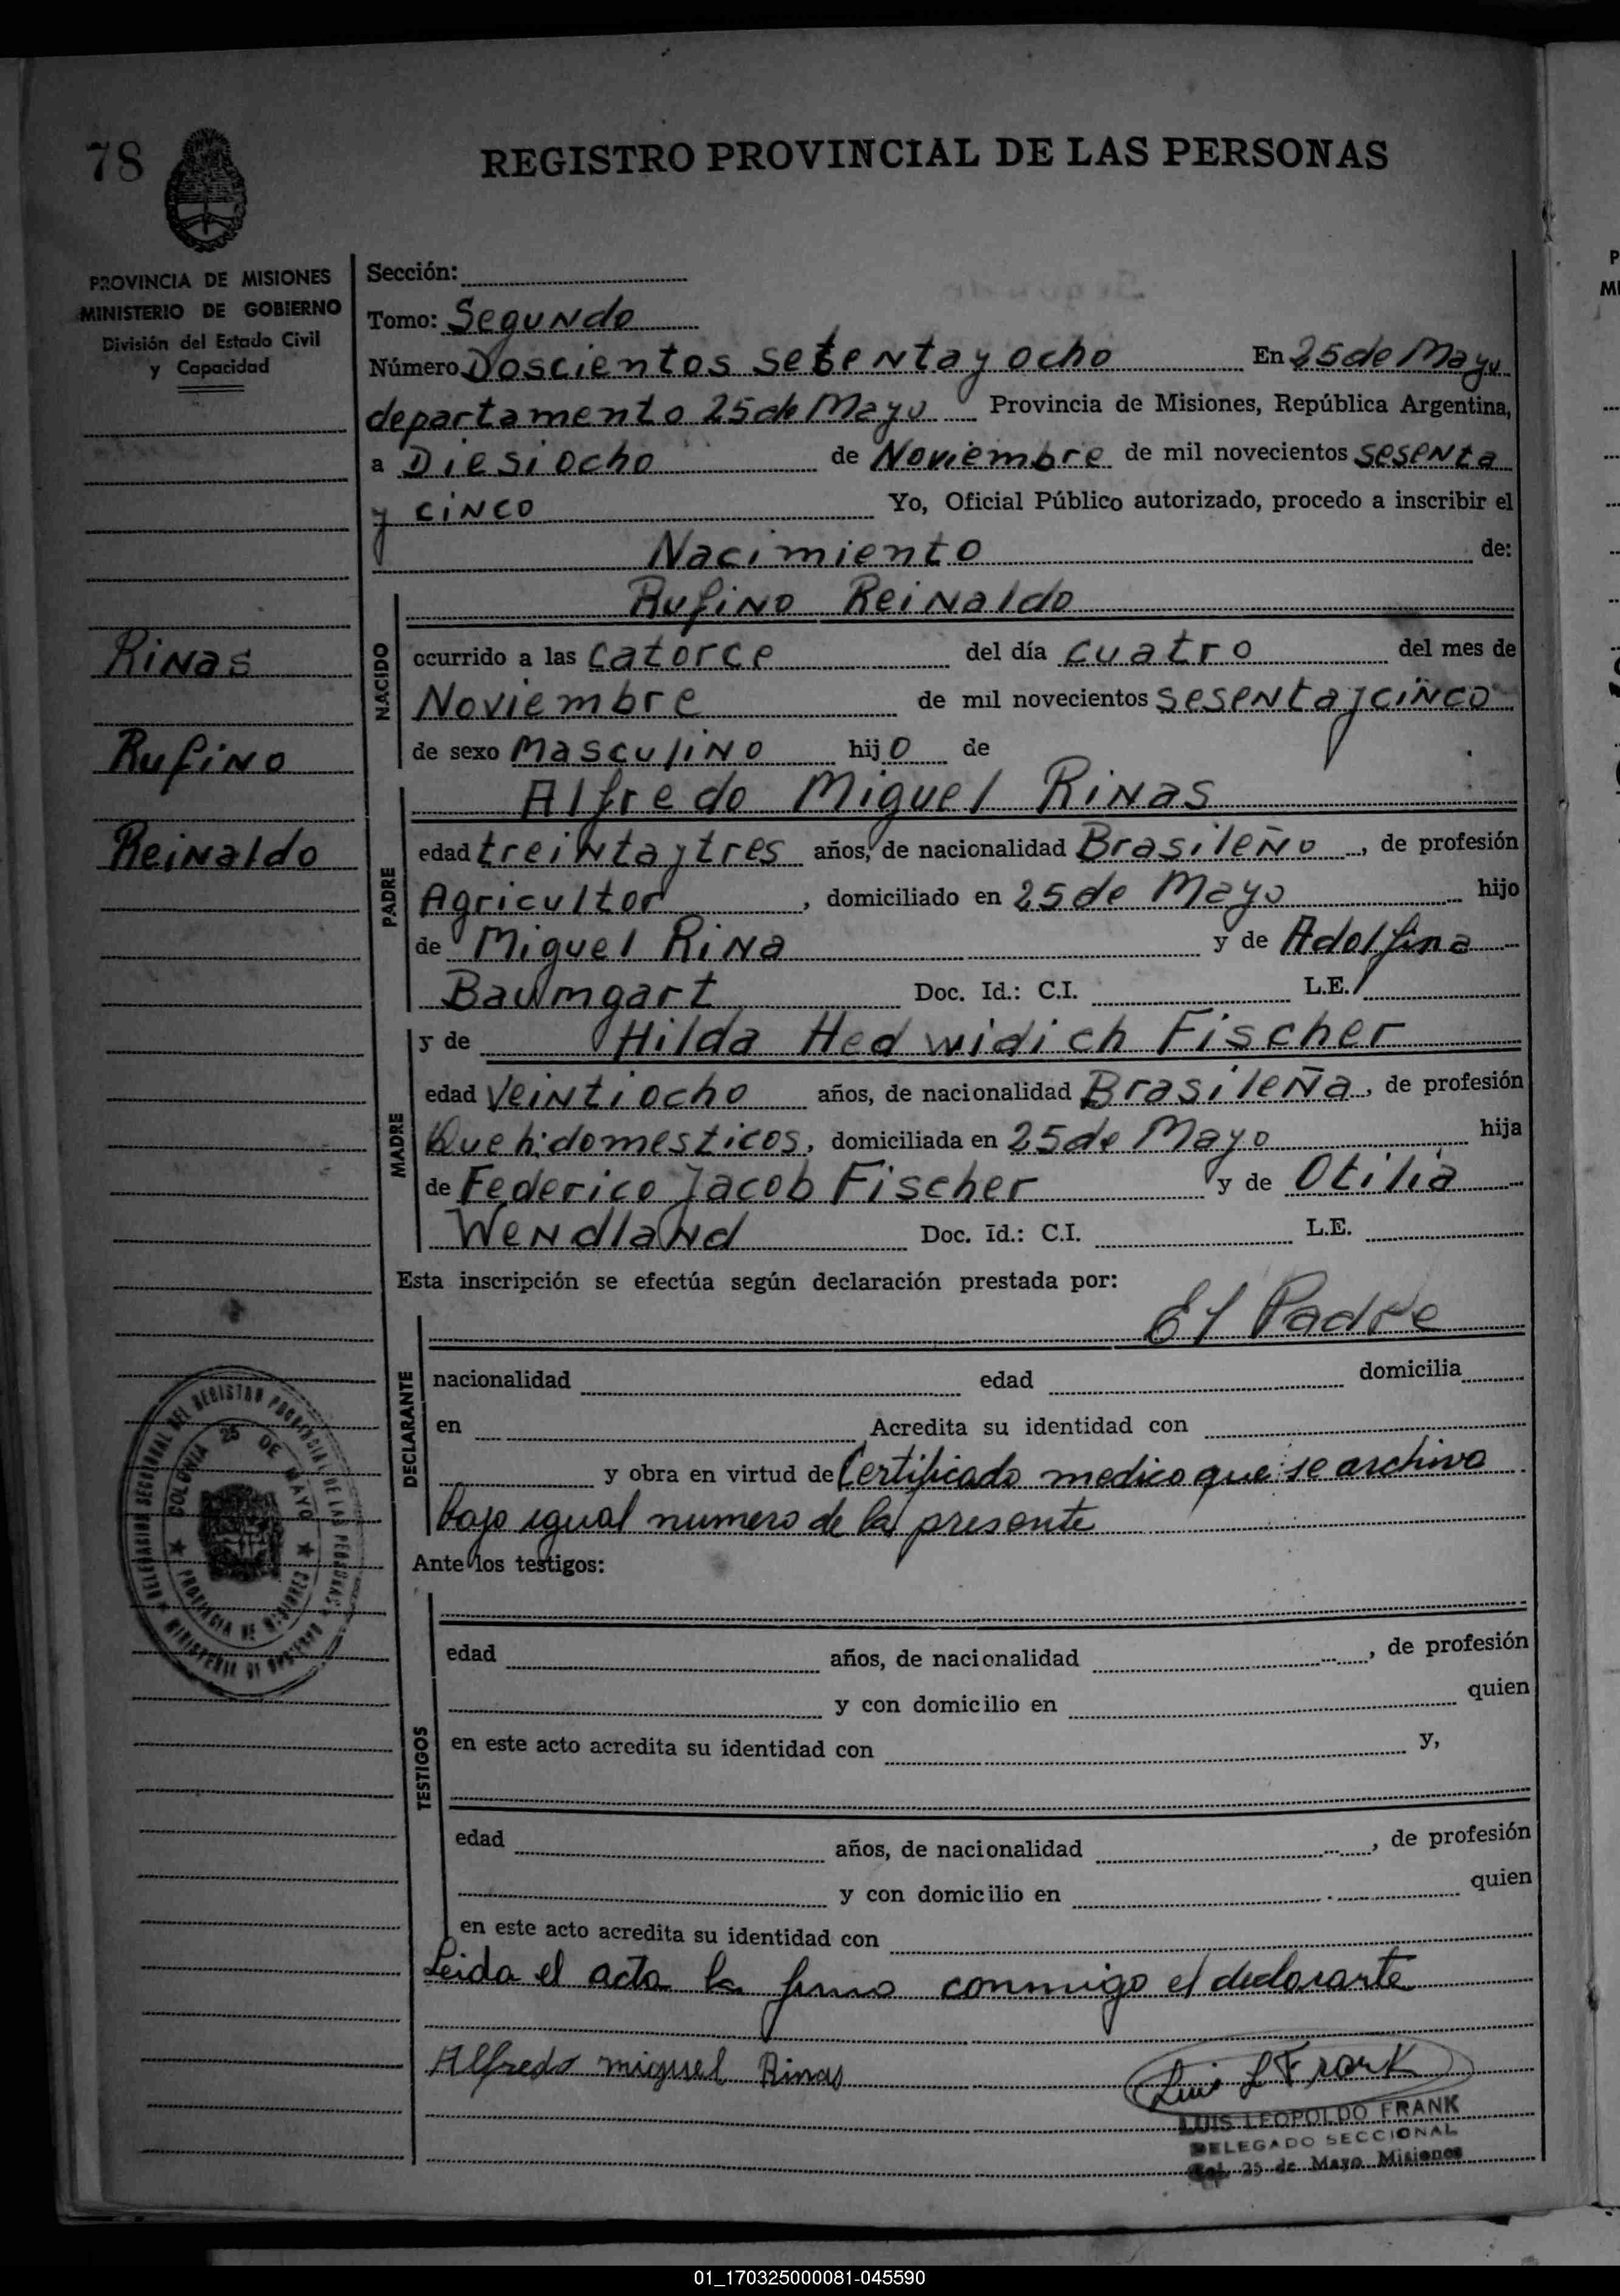 78
REGISTRO PROVINCIAL DE LAS PERSONAS
PROVINCIA DE MISIONES
MINISTERIO DE GOBIERNO
División del Estado Civil
y Capacidad
Rinas
Rufino
Reinaldo
Sección:
Tomo: Segundo
Número Doscientos setenta y ocho En 25 de Mayo
departamento 25 de Mayo Provincia de Misiones, República Argentina,
a Diesiocho de Noviembre de mil novecientos sesenta
y cinco Yo, Oficial Público autorizado, procedo a inscribir el
Nacimiento de:
NACIDO
Rufino Reinaldo
ocurrido a las catorce del día cuatro del mes de
Noviembre de mil novecientos sesenta y cinco
de sexo masculino hijo de
PADRE
Alfredo Miguel Rinas
edad treinta y tres años, de nacionalidad Brasileño, de profesión
Agricultor, domiciliado en 25 de Mayo hijo
de Miguel Rina y de Adolfina
Baumgart Doc. Id.: C.I. L.E.
MADRE
y de Hilda Hedwidich Fischer
edad veintiocho años, de nacionalidad Brasileña, de profesión
domesticos, domiciliada en 25 de Mayo hija
de Federico Jacob Fischer y de Otilia
Wendland Doc. Id.: C.I. L.E.
Esta inscripción se efectúa según declaración prestada por:
DECLARANTE
El Padre
nacionalidad edad domicilia
en Acredita su identidad con
y obra en virtud de Certificado medico que se archiva
bajo igual numero de la presente
Ante los testigos:
TESTIGOS
edad años, de nacionalidad , de profesión
y con domicilio en quien
en este acto acredita su identidad con y,
edad años, de nacionalidad , de profesión
y con domicilio en quien
en este acto acredita su identidad con
Leida el acta la firma conmigo el declarante
Alfredo miguel Rinas
Luis L Frank
LUIS LEOPOLDO FRANK
DELEGADO SECCIONAL
Col. 25 de Mayo Misiones
DELEGACION SECCIONAL DEL REGISTRO PROVINCIAL DE LAS PERSONAS
MINISTERIO DE GOBIERNO
COLONIA 25 DE MAYO
PROVINCIA DE MISIONES
01_170325000081-045590